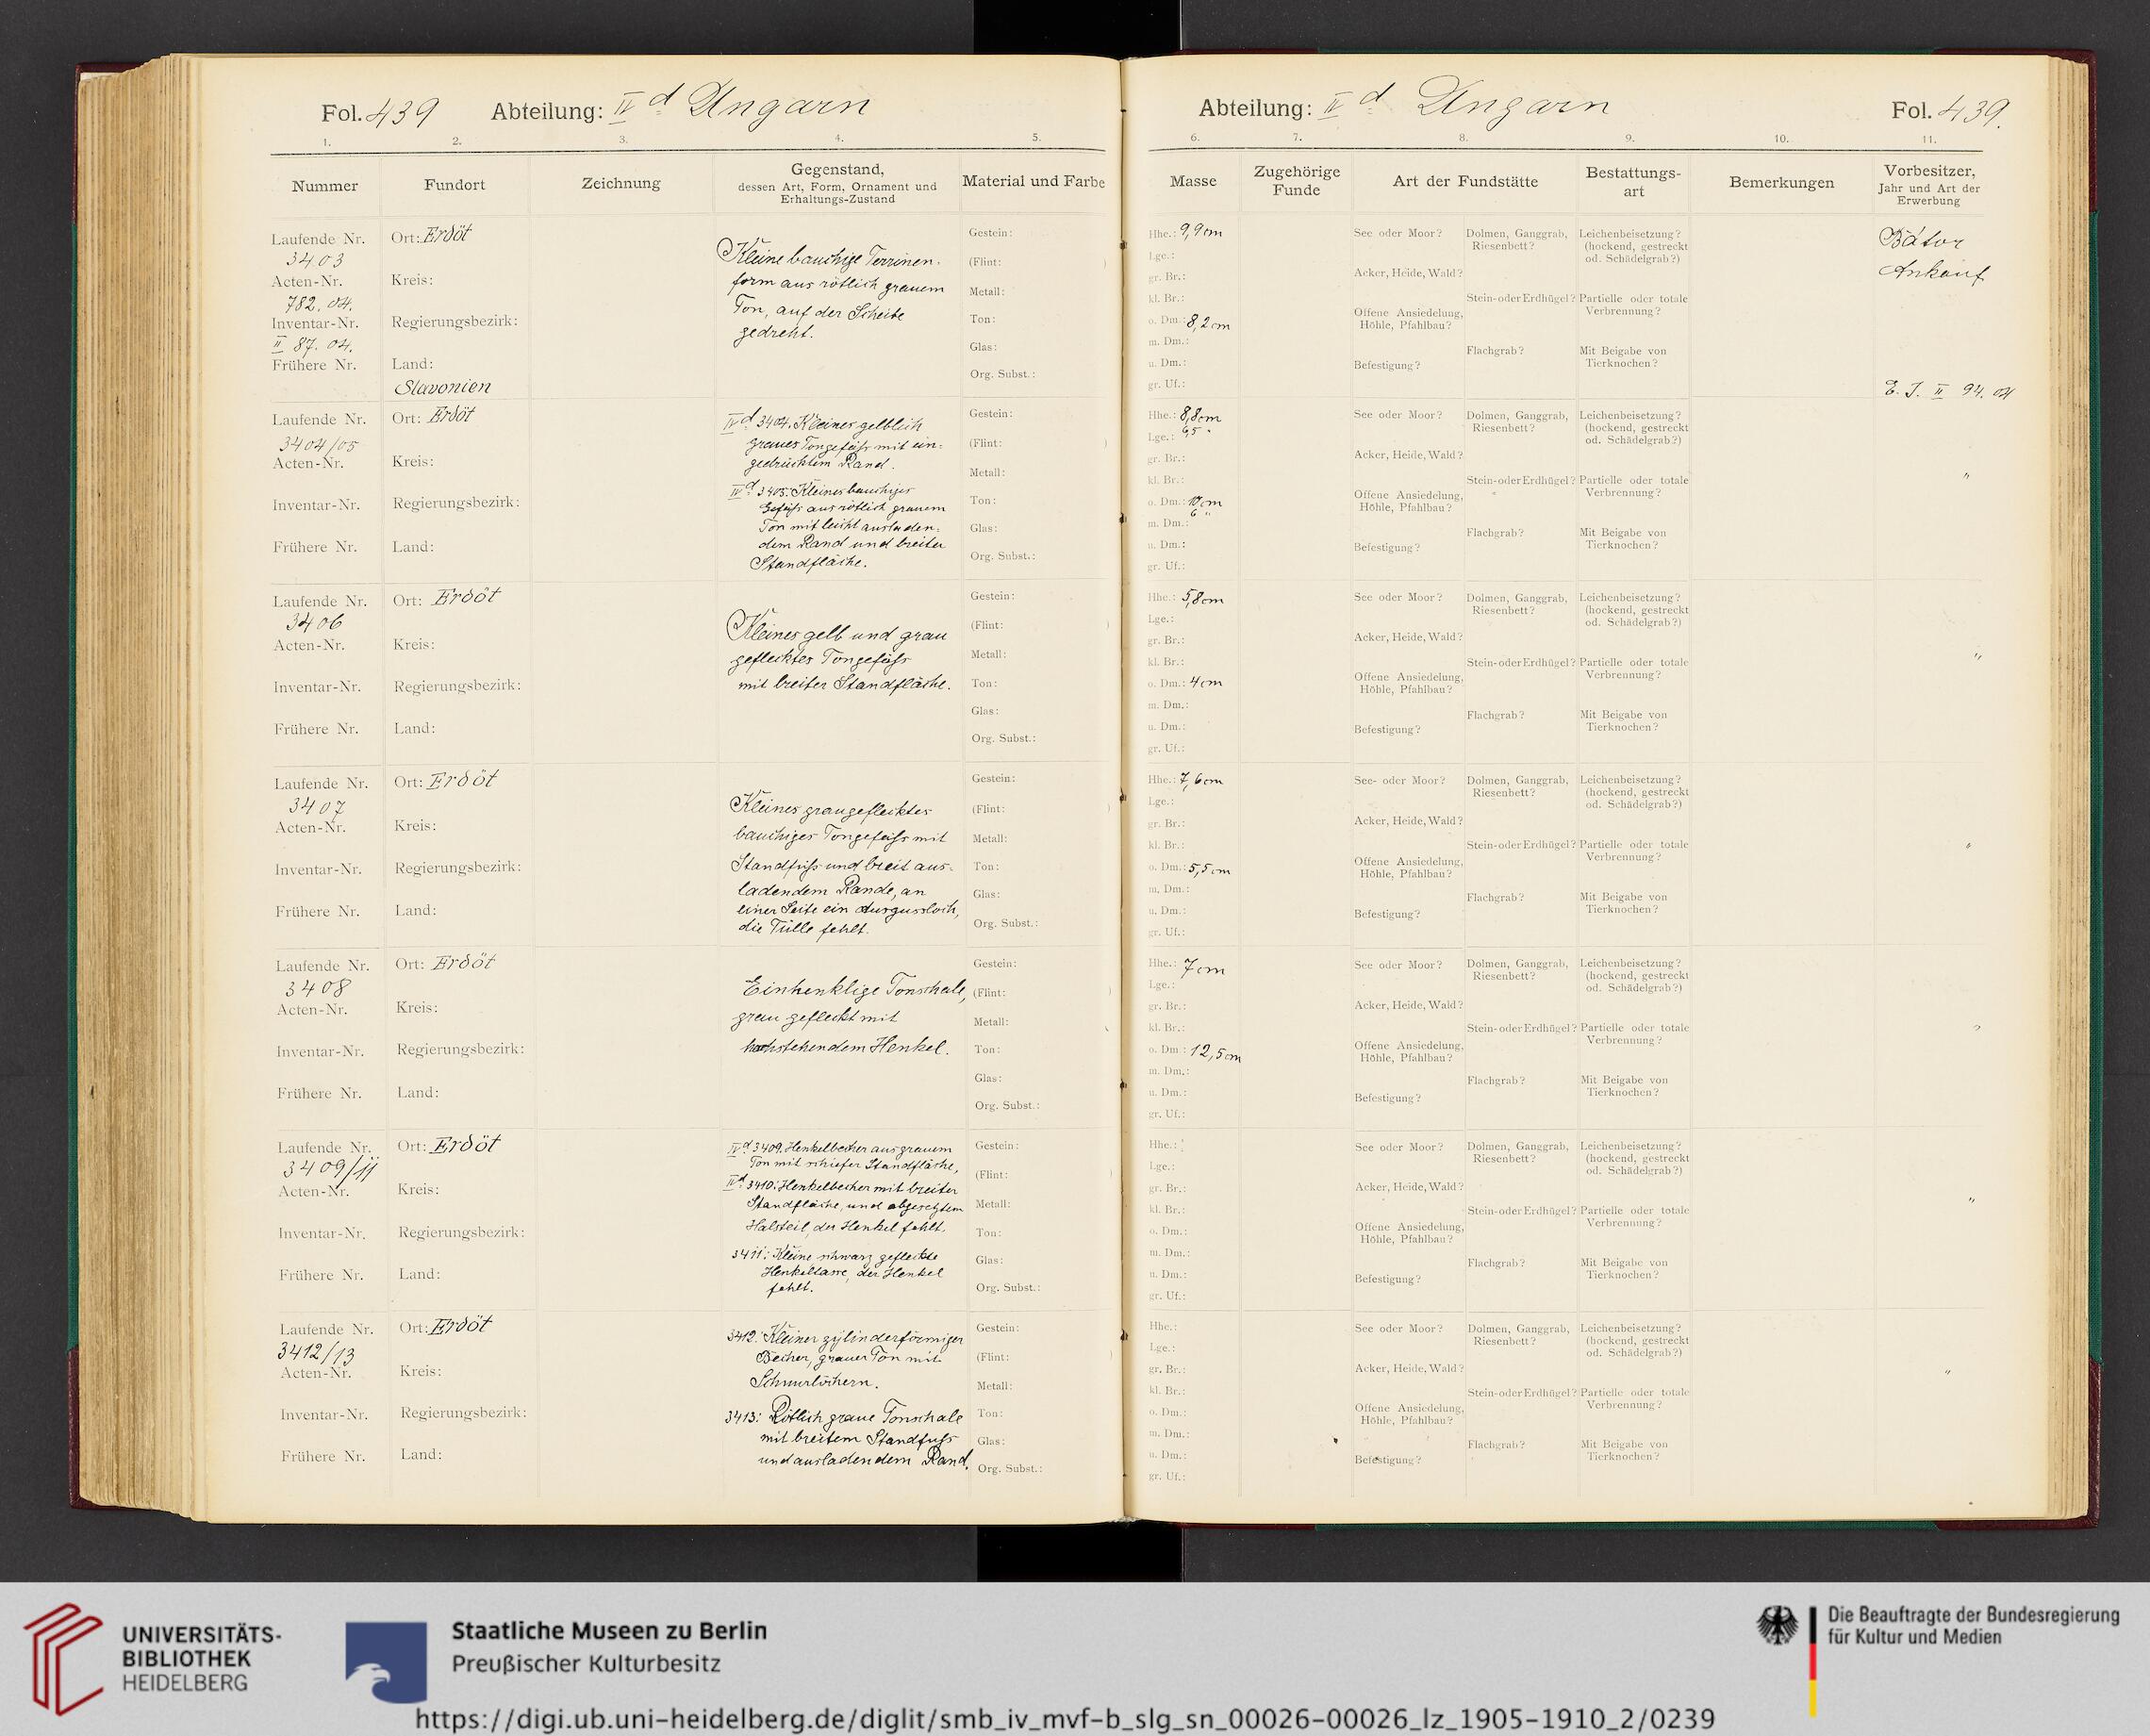 Fol. 439 Abteilung: IV d Ungarn
1. 2. 3. 4. 5.
Nummer Fundort Zeichnung Gegenstand, dessen Art, Form, Ornament und Erhaltungs-Zustand Material und Farbe
Laufende Nr. 3403
Acten-Nr. 782. 04.
Inventar-Nr. II 87. 04.
Frühere Nr.
Ort: Erdöt
Kreis:
Regierungsbezirk:
Land: Slavonien
Kleine bauchige Terrinen-
form aus rötlich grauem
Ton, auf der Scheibe
gedreht.
Gestein:
(Flint: )
Metall:
Ton:
Glas:
Org. Subst.:
Laufende Nr. 3404/05
Acten-Nr.
Inventar-Nr.
Frühere Nr.
Ort: Erdöt
Kreis:
Regierungsbezirk:
Land:
IV d 3404. Kleines gelblich
graues Tongefäss mit ein-
gedrücktem Rand.
IV d 3405: Kleines bauchiges
Gefäss aus rötlich grauem
Ton mit leicht ausladen-
dem Rand und breiter
Standfläche.
Gestein:
(Flint: )
Metall:
Ton:
Glas:
Org. Subst.:
Laufende Nr. 3406
Acten-Nr.
Inventar-Nr.
Frühere Nr.
Ort: Erdöt
Kreis:
Regierungsbezirk:
Land:
Kleines gelb und grau
geflecktes Tongefäss
mit breiter Standfläche.
Gestein:
(Flint: )
Metall:
Ton:
Glas:
Org. Subst.:
Laufende Nr. 3407
Acten-Nr.
Inventar-Nr.
Frühere Nr.
Ort: Erdöt
Kreis:
Regierungsbezirk:
Land:
Kleines graugeflecktes
bauchiges Tongefäss mit
Standfuss und breit aus-
ladendem Rande, an
einer Seite ein Ausgussloch,
die Tülle fehlt.
Gestein:
(Flint: )
Metall:
Ton:
Glas:
Org. Subst.:
Laufende Nr. 3408
Acten-Nr.
Inventar-Nr.
Frühere Nr.
Ort: Erdöt
Kreis:
Regierungsbezirk:
Land:
Einhenklige Tonschale,
grau gefleckt mit
hochstehendem Henkel.
Gestein:
(Flint:
Metall:
Ton:
Glas:
Org. Subst.:
Laufende Nr. 3409/11
Acten-Nr.
Inventar-Nr.
Frühere Nr.
Ort: Erdöt
Kreis:
Regierungsbezirk:
Land:
IV d 3409. Henkelbecher aus grauem
Ton mit schiefer Standfläche,
IV d 3410: Henkelbecher mit breiter
Standfläche, und abgesetztem
Halsteil, der Henkel fehlt.
3411: Kleine schwarz gefleckte
Henkeltasse, der Henkel
fehlt.
Gestein:
(Flint: )
Metall:
Ton:
Glas:
Org. Subst.:
Laufende Nr. 3412/13
Acten-Nr.
Inventar-Nr.
Frühere Nr.
Ort: Erdöt
Kreis:
Regierungsbezirk:
Land:
3412: Kleiner zylinderförmiger
Becher, grauer Ton mit
Schnurlöchern.
3413: Rötlich graue Tonschale
mit breitem Standfuss
und ausladendem Rand.
Gestein:
(Flint: )
Metall:
Ton:
Glas:
Org. Subst.:
Abteilung: IV d Ungarn Fol. 439.
6. 7. 8. 9. 10. 11.
Masse Zugehörige Funde Art der Fundstätte Bestattungs-art Bemerkungen Vorbesitzer, Jahr und Art der Erwerbung
Hhe.: 9,9 cm
Lge.:
gr. Br.:
kl. Br.:
o. Dm.: 8,2 cm
m. Dm.:
u. Dm.:
gr. Uf.:
See oder Moor?
Acker, Heide, Wald?
Offene Ansiedelung,
Höhle, Pfahlbau?
Befestigung?
Dolmen, Ganggrab,
Riesenbett?
Stein- oder Erdhügel?
Flachgrab?
Leichenbeisetzung?
(hockend, gestreckt
od. Schädelgrab?)
Partielle oder totale
Verbrennung?
Mit Beigabe von
Tierknochen?
Bátor
Ankauf
E. J. II 94. 04
Hhe.: 8,8 cm
Lge.: 6,5 "
gr. Br.:
kl. Br.:
o. Dm.: 10 cm
6 "
m. Dm.:
u. Dm.:
gr. Uf.:
See oder Moor?
Acker, Heide, Wald?
Offene Ansiedelung,
Höhle, Pfahlbau?
Befestigung?
Dolmen, Ganggrab,
Riesenbett?
Stein- oder Erdhügel?
Flachgrab?
Leichenbeisetzung?
(hockend, gestreckt
od. Schädelgrab?)
Partielle oder totale
Verbrennung?
Mit Beigabe von
Tierknochen?
"
Hhe.: 5,8 cm
Lge.:
gr. Br.:
kl. Br.:
o. Dm.: 4 cm
m. Dm.:
u. Dm.:
gr. Uf.:
See oder Moor?
Acker, Heide, Wald?
Offene Ansiedelung,
Höhle, Pfahlbau?
Befestigung?
Dolmen, Ganggrab,
Riesenbett?
Stein- oder Erdhügel?
Flachgrab?
Leichenbeisetzung?
(hockend, gestreckt
od. Schädelgrab?)
Partielle oder totale
Verbrennung?
Mit Beigabe von
Tierknochen?
"
Hhe.: 7,6 cm
Lge.:
gr. Br.:
kl. Br.:
o. Dm.: 5,5 cm
m. Dm.:
u. Dm.:
gr. Uf.:
See- oder Moor?
Acker, Heide, Wald?
Offene Ansiedelung,
Höhle, Pfahlbau?
Befestigung?
Dolmen, Ganggrab,
Riesenbett?
Stein- oder Erdhügel?
Flachgrab?
Leichenbeisetzung?
(hockend, gestreckt
od. Schädelgrab?)
Partielle oder totale
Verbrennung?
Mit Beigabe von
Tierknochen?
"
Hhe.: 7 cm
Lge.:
gr. Br.:
kl. Br.:
o. Dm.: 12,5 cm
m. Dm.:
u. Dm.:
gr. Uf.:
See oder Moor?
Acker, Heide, Wald?
Offene Ansiedelung,
Höhle, Pfahlbau?
Befestigung?
Dolmen, Ganggrab,
Riesenbett?
Stein- oder Erdhügel?
Flachgrab?
Leichenbeisetzung?
(hockend, gestreckt
od. Schädelgrab?)
Partielle oder totale
Verbrennung?
Mit Beigabe von
Tierknochen?
"
Hhe.:
Lge.:
gr. Br.:
kl. Br.:
o. Dm.:
m. Dm.:
u. Dm.:
gr. Uf.:
See oder Moor?
Acker, Heide, Wald?
Offene Ansiedelung,
Höhle, Pfahlbau?
Befestigung?
Dolmen, Ganggrab,
Riesenbett?
Stein- oder Erdhügel?
Flachgrab?
Leichenbeisetzung?
(hockend, gestreckt
od. Schädelgrab?)
Partielle oder totale
Verbrennung?
Mit Beigabe von
Tierknochen?
"
Hhe.:
Lge.:
gr. Br.:
kl. Br.:
o. Dm.:
m. Dm.:
u. Dm.:
gr. Uf.:
See oder Moor?
Acker, Heide, Wald?
Offene Ansiedelung,
Höhle, Pfahlbau?
Befestigung?
Dolmen, Ganggrab,
Riesenbett?
Stein- oder Erdhügel?
Flachgrab?
Leichenbeisetzung?
(hockend, gestreckt
od. Schädelgrab?)
Partielle oder totale
Verbrennung?
Mit Beigabe von
Tierknochen?
"
UNIVERSITÄTS-
BIBLIOTHEK
HEIDELBERG
Staatliche Museen zu Berlin
Preußischer Kulturbesitz
Die Beauftragte der Bundesregierung
für Kultur und Medien
https://digi.ub.uni-heidelberg.de/diglit/smb_iv_mvf-b_slg_sn_00026-00026_lz_1905-1910_2/0239